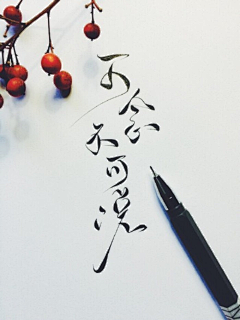 可念不可说